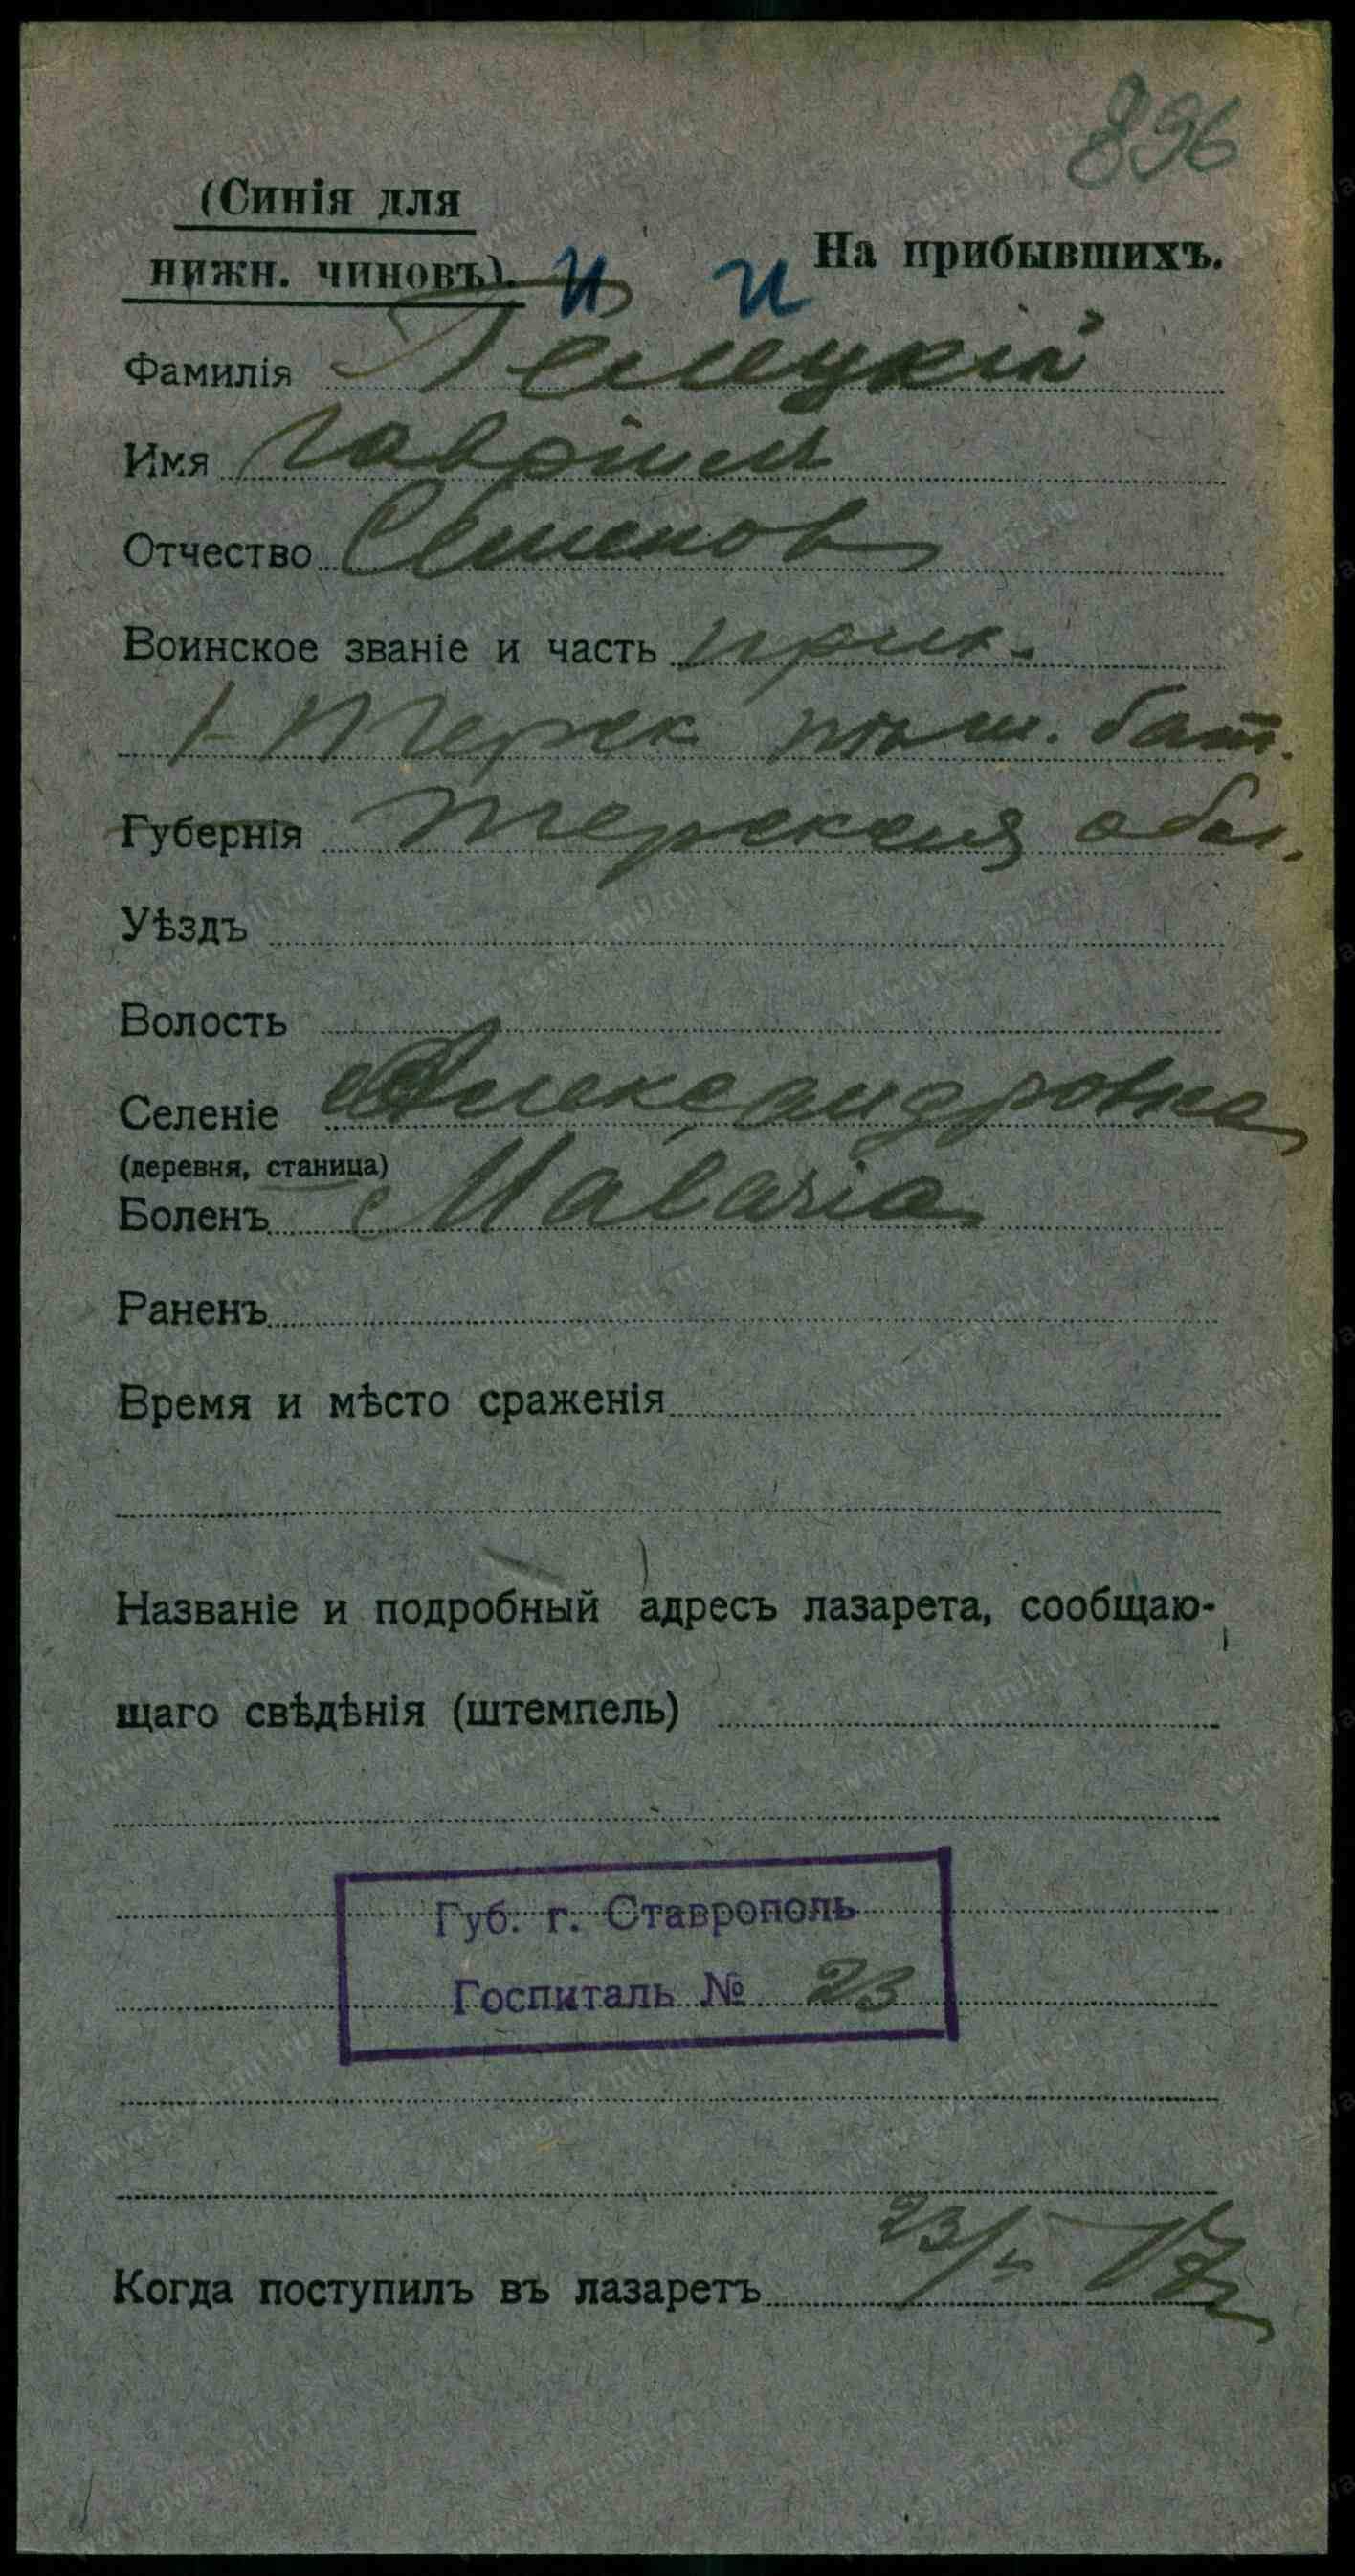 896
(Синія для
нижн. чиновъ).
На прибывшихъ.
и и
Фамилія
Имя Гавріил
Отчество Семенов
Воинское званіе и часть
1 Терск пласт. бат.
Губернія Терская обл.
Уѣздъ
Волость
Селеніе Александровка
(деревня, станица)
Боленъ Malaria
Раненъ
Время и мѣсто сраженія
Названіе и подробный адресъ лазарета, сообщаю-
щаго свѣдѣнія (штемпель)
Губ. г. Ставрополь
Госпиталь № 23
Когда поступилъ въ лазаретъ 23/V 17